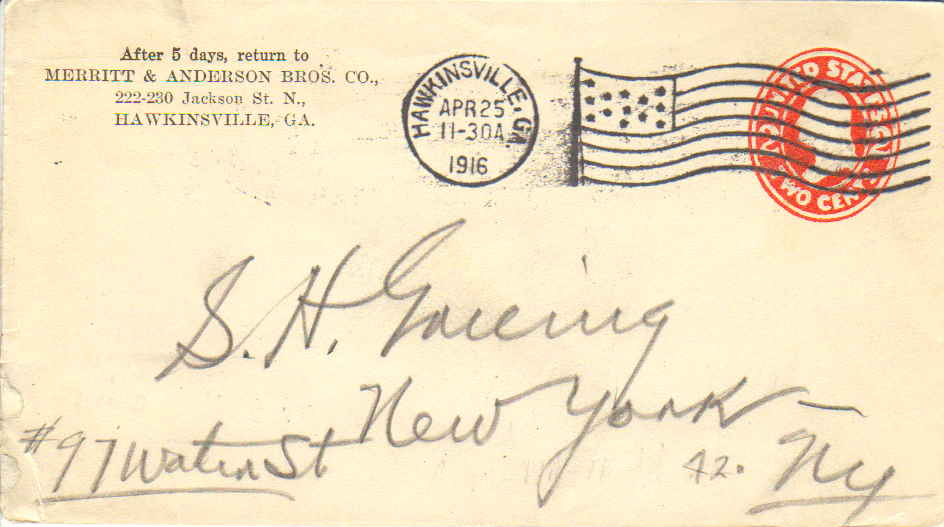 After 5 days, return to
MERRITT & ANDERSON BROS. CO.,
222-230 Jackson St. N.,
HAWKINSVILLE, GA.
HAWKINSVILLE, GA.
APR 25
11-30A
1916
UNITED STATES
TWO CENTS
S. H.
New York
#97 Water St
42.
Ny